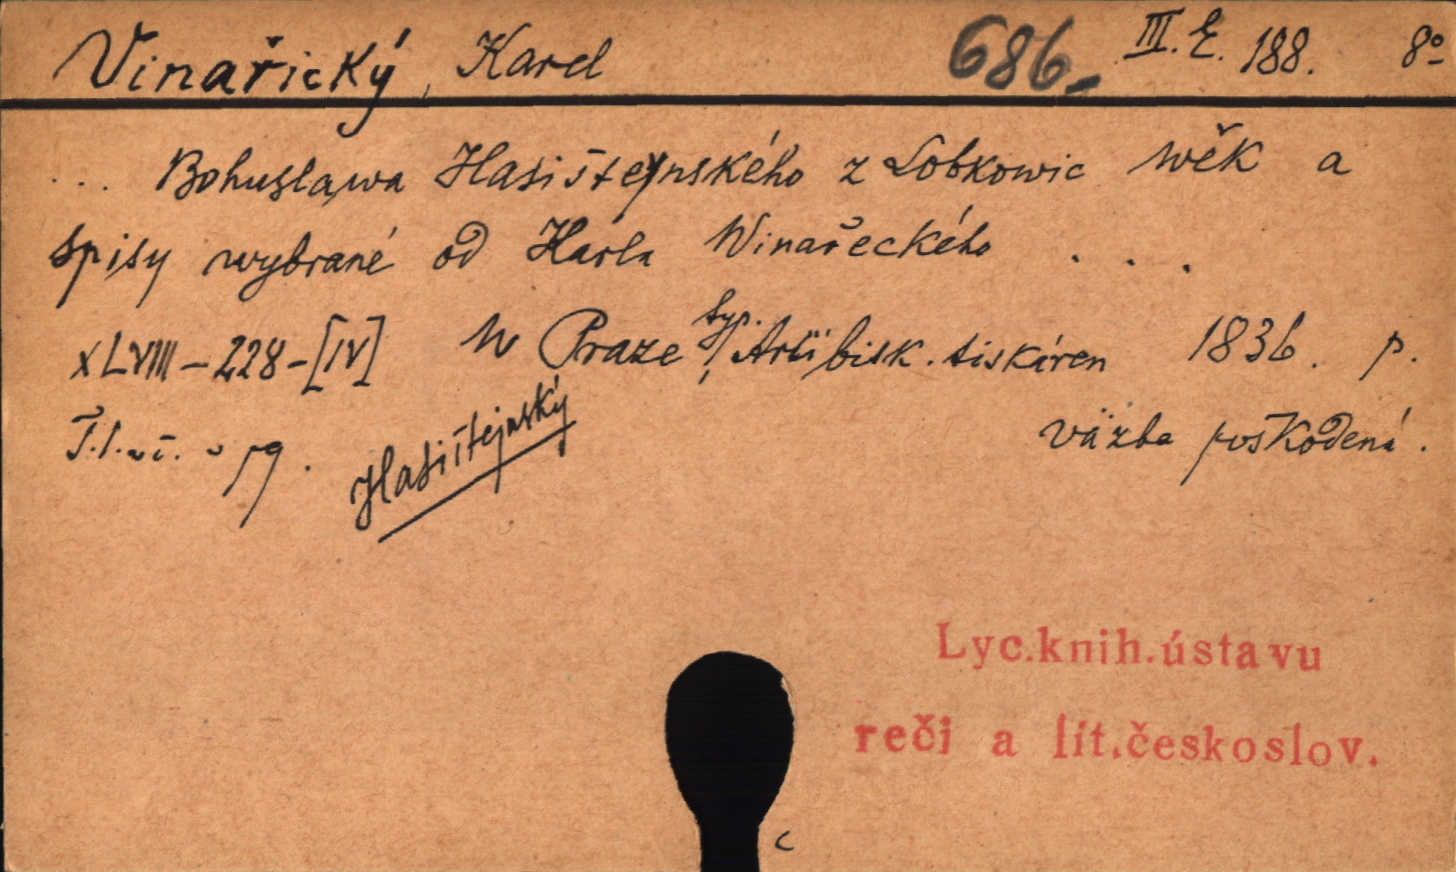 Vinařický, Karel 686. III. E. 188. 8º
... Bohuslawa Hasišteynského z Lobkowic wěk a
spisy wybrané od Karla Winařeckého . . .
XLVIII-228-[IV] W Praze, typ. Arcibisk. tiskáren 1836. p.
T.l. 19.
Hasištejnský
väzba poskodená.
Lyc.knih.ústavu
reči a lit.českoslov.
c